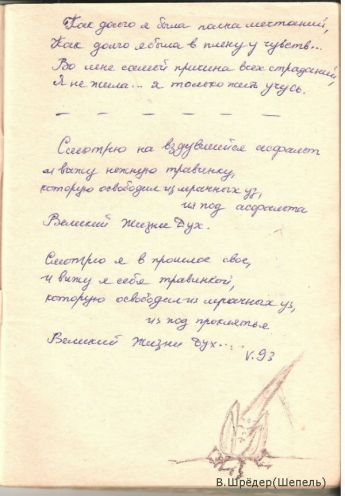 Как долго я была полна мечтаний,
Как долго я была в плену у чувств...
Во мне самой причина всех страданий,
Я не жила... я только жить учусь.
— — — — — —
Смотрю на вздувшийся асфальт
и вижу нежную травинку,
которую освободил из мрачных уз,
из под асфальта
Великий Жизни Дух.
Смотрю я в прошлое своё,
и вижу я себя травинкой,
которую освободил из мрачных уз,
из под проклятья
Великий Жизни Дух...
V.93
В.Шрёдер(Шепель)